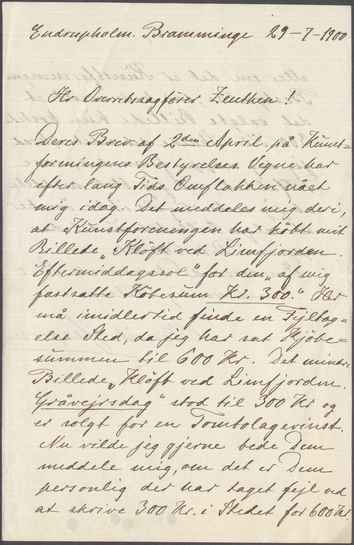 Endrupholm. Bramminge 29-7-1900
Hr Overretssagfører Zeuthen!
Deres Brev af 2den April på Kunst-
foreningens Bestyrelses Vegne har
efter lang Tids Omflakken nået
mig idag. Det meddeles mig deri,
at Kunstforeningen har købt mit
Billede „Kløft ved Limfjorden.
Eftermiddagssol" for den „af mig
fastsatte Købesum Kr. 300." Her
må imidlertid finde en Fejltag-
else Sted, da jeg har sat Kjøbe-
summen til 600 Kr. Det mindre
Billede „Kløft ved Limfjorden.
Gråvejrsdag" stod til 300 Kr og
er solgt for en Tombolagevinst.
Nu vilde jeg gjerne bede Dem
meddele mig, om det er Dem
personlig der har taget fejl ved
at skrive 300 Kr. i Stedet for 600 Kr.